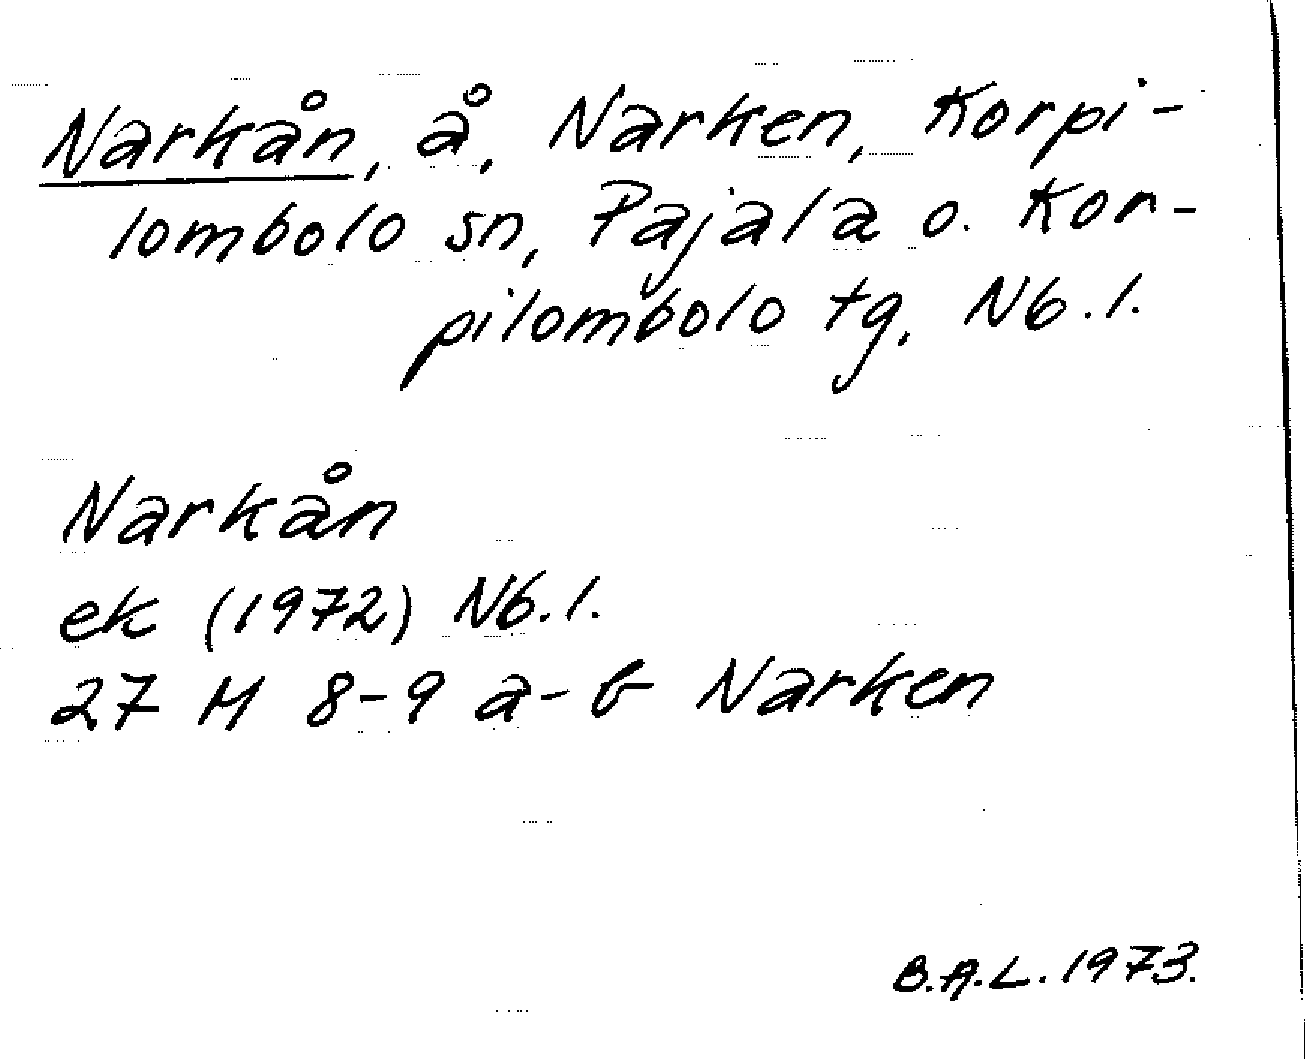 Narkån, å, Narken, Korpi-
lombolo sn, Pajala o. Kor-
pilombolo tg, Nb.l.
Narkån
ek (1972) Nb.l.
27 M 8-9 a-b Narken
B.A.L. 1973.